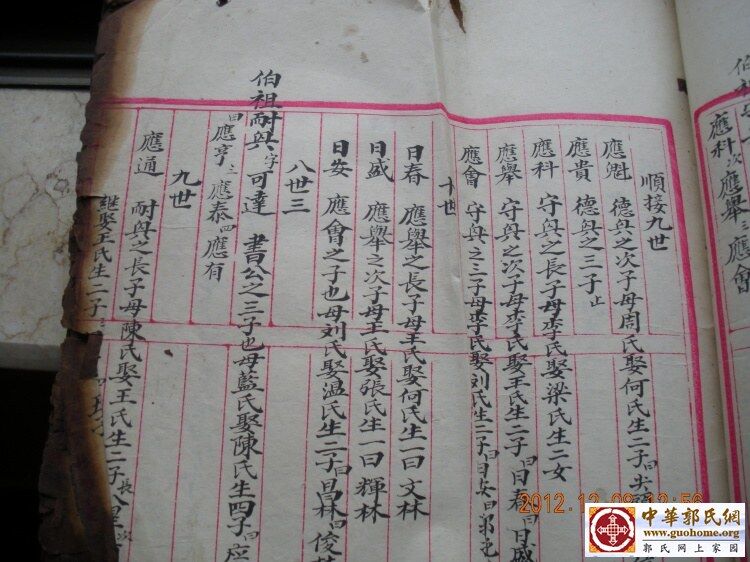 順接九世
應魁 德與之次子母周氏娶何氏生二子曰尖頭
應貴 德與之三子止
應科 守與之長子母李氏娶梁氏生二女
應舉 守與之次子母李氏娶王氏生二子曰日春曰日盛
應會 守與之三子母李氏娶刘氏生二子曰日安曰
十世
日春 應舉之長子母王氏娶何氏生一曰文林
日盛 應舉之次子母王氏娶張氏生一曰輝林
日安 應會之子也母刘氏娶温氏生二子曰昌林曰俊
八世三
伯祖耐與字可達 書公之三子也母藍氏娶陳氏生四子曰應
曰應亨三應泰四應有
九世
應通 耐與之長子母陳氏娶王氏生二子長
継娶王氏生二子
伯祖
應科次應舉三應會
2012.12.09 13:56
中華郭氏網
www.guohome.org
郭氏网上家园